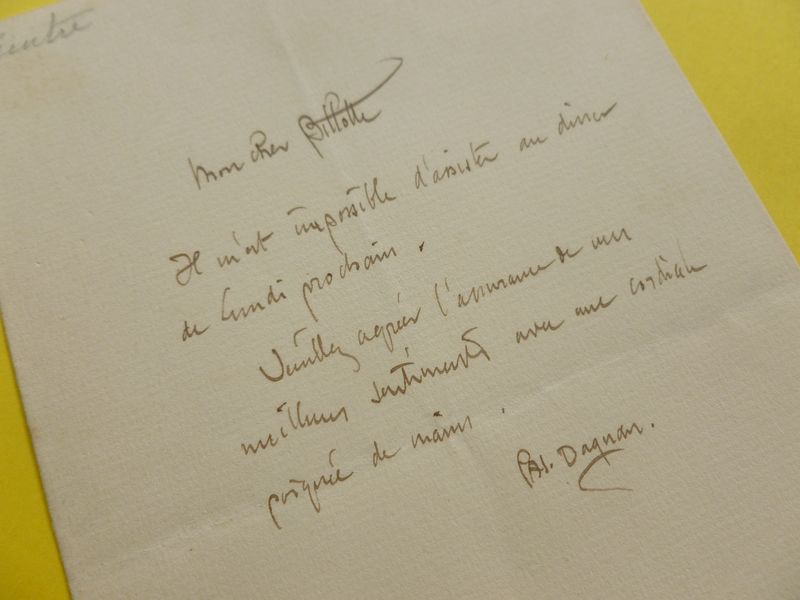 peintre
Mon cher Billotte
Il m'est impossible d'assister au dîner
de Lundi prochain.
Veuillez agréer l'assurance de mes
meilleurs sentiments avec une cordiale
poignée de mains.
PAJ. Dagnan.